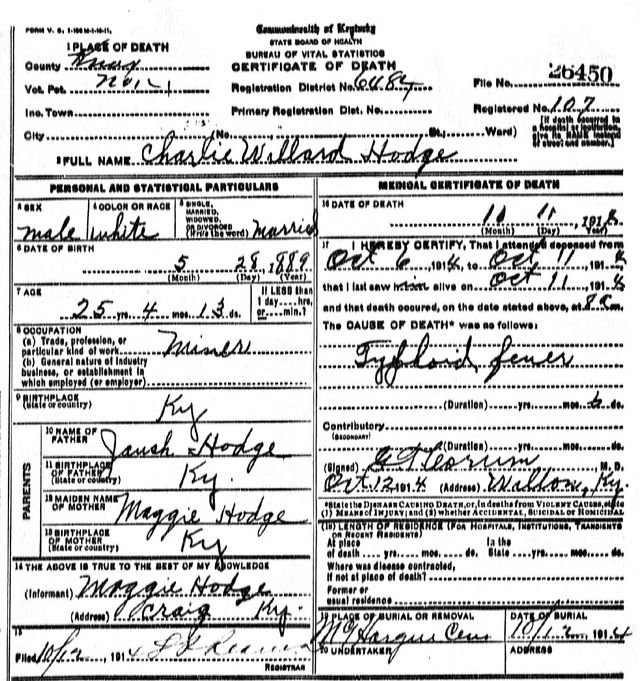 FORM V. S. 1
Commonwealth of Kentucky
STATE BOARD OF HEALTH
BUREAU OF VITAL STATISTICS
CERTIFICATE OF DEATH
1 PLACE OF DEATH
County Knox
Vot. Pct. No. 1
Registration District No. 6484
File No. 26450
Inc. Town
Primary Registration Dist. No.
Registered No. 107
City (No. St., Ward)
[If death occurred in a hospital or institution, give its NAME instead of street and number.]
2 FULL NAME Charlie Willard Hodge
PERSONAL AND STATISTICAL PARTICULARS
3 SEX male
4 COLOR OR RACE white
5 SINGLE, MARRIED, WIDOWED, OR DIVORCED (Write the word) Married
6 DATE OF BIRTH
5 28, 1889
(Month) (Day) (Year)
7 AGE
25 yrs. 4 mos. 13 ds.
If LESS than 1 day....hrs. or....min.?
8 OCCUPATION
(a) Trade, profession, or
particular kind of work Miner
(b) General nature of industry
business, or establishment in
which employed (or employer)
9 BIRTHPLACE
(State or country) Ky
PARENTS
10 NAME OF
FATHER Hodge
11 BIRTHPLACE
OF FATHER
(State or country) Ky.
12 MAIDEN NAME
OF MOTHER Maggie Hodge
13 BIRTHPLACE
OF MOTHER
(State or country) Ky
14 THE ABOVE IS TRUE TO THE BEST OF MY KNOWLEDGE
(Informant) Maggie Hodge
(Address) Craig Ky.
15
Filed 10/12, 1914
REGISTRAR
MEDICAL CERTIFICATE OF DEATH
16 DATE OF DEATH
11, 1914
(Month) (Day) (Year)
17 I HEREBY CERTIFY, That I attended deceased from
Oct 6 1914 to Oct 11 1914
that I last saw alive on Oct 11, 1914
and that death occured, on the date stated above, at 8
The CAUSE OF DEATH* was as follows:
Typhoid fever
(Duration) yrs. mos. ds.
Contributory
(SECONDARY)
(Duration) yrs. mos. ds.
(Signed) M. D.
Oct 12 1914 (Address) Ky.
*State the DISEASE CAUSING DEATH, or, in deaths from VIOLENT CAUSES, state
(1) MEANS OF INJURY; and (2) whether ACCIDENTAL, SUICIDAL or HOMICIDAL
(18) LENGTH OF RESIDENCE (FOR HOSPITALS, INSTITUTIONS, TRANSIENTS
OR RECENT RESIDENTS)
At place In the
of death yrs. mos. ds. State yrs. mos. ds.
Where was disease contracted,
if not at place of death?
Former or
usual residence
19 PLACE OF BURIAL OR REMOVAL
McHargue Cem
DATE OF BURIAL
10/12, 1914
20 UNDERTAKER
ADDRESS